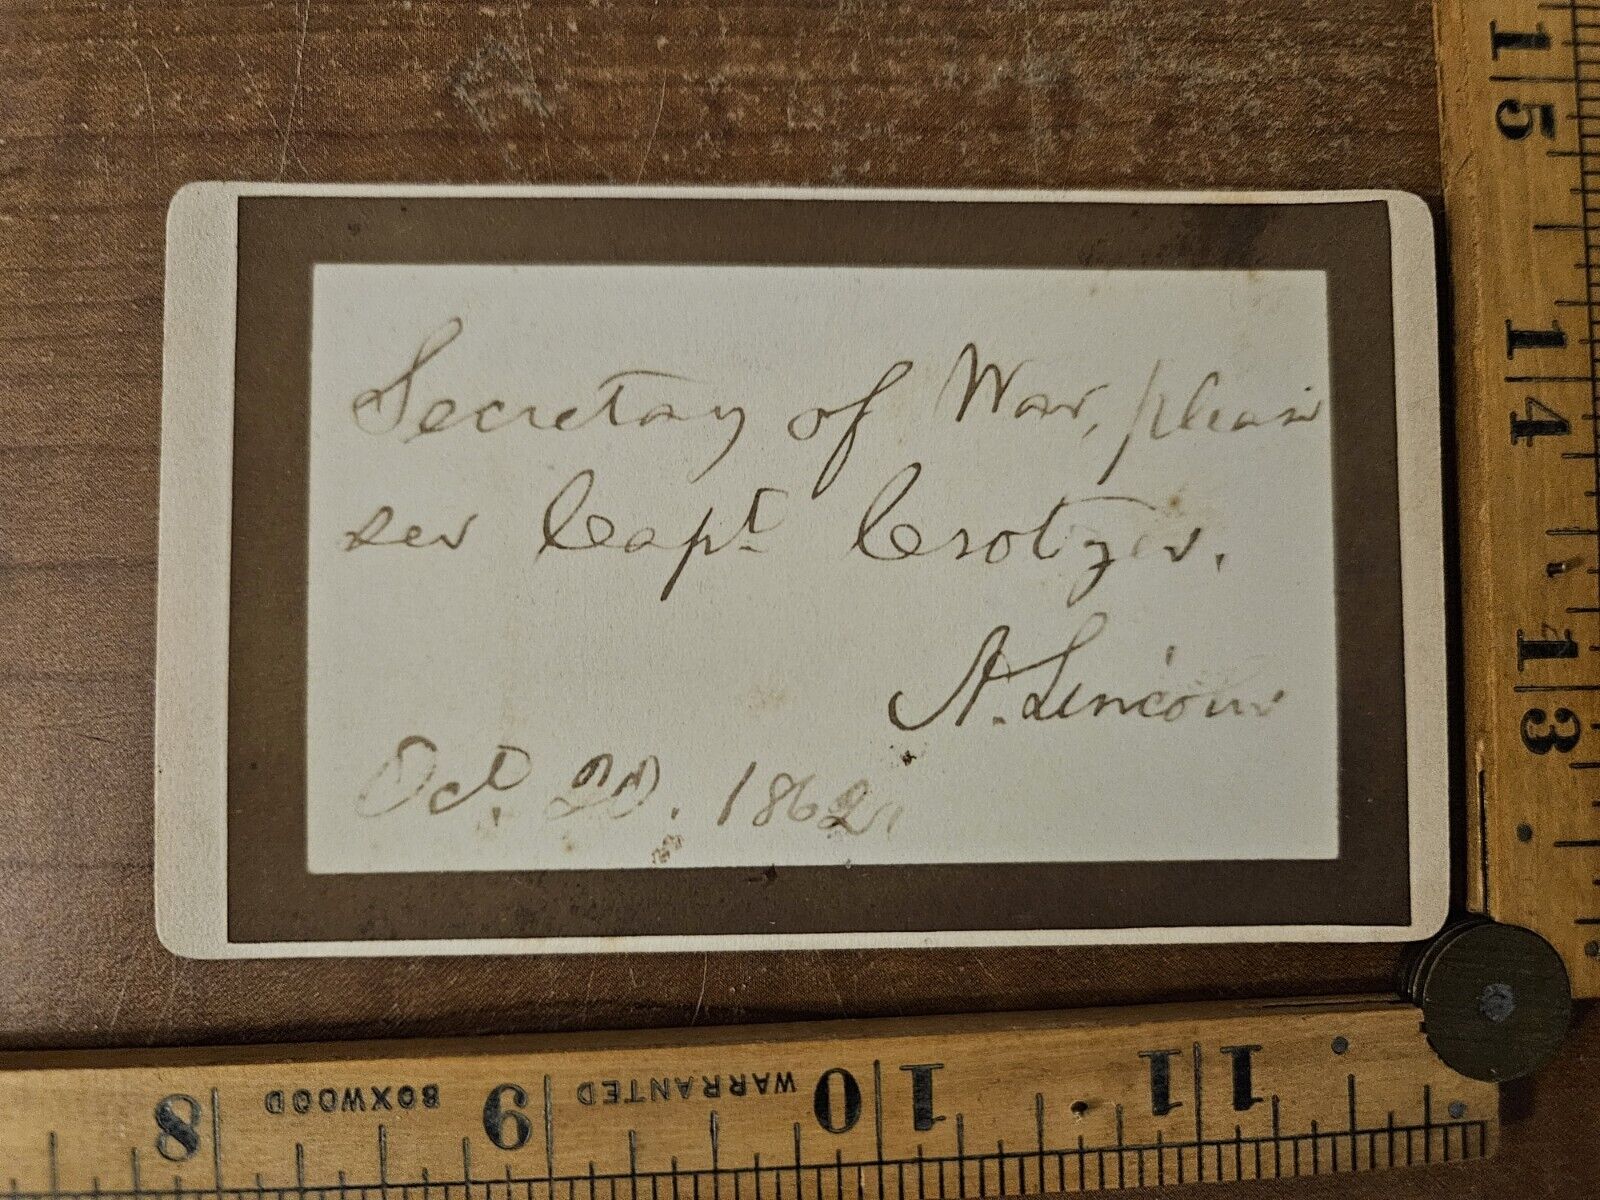 Secretary of War, please
see Capt. Crotzer.
A. Lincoln
Oct. 20. 1862.
15
14
13
8 BOXWOOD 9 WARRANTED 10 11